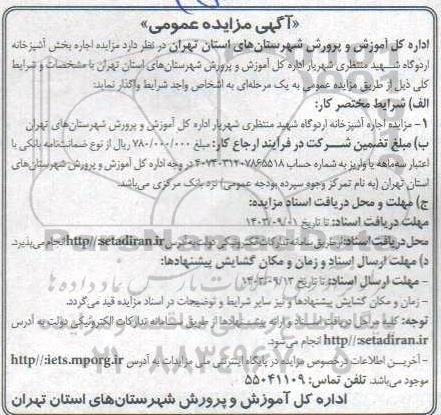 «آگهی مزایده عمومی»
اداره کل آموزش و پرورش شهرستان‌های استان تهران در نظر دارد مزایده اجاره بخش آشپزخانه
اردوگاه شهید منتظری شهریار اداره کل آموزش و پرورش شهرستان‌های استان تهران با مشخصات و شرایط
کلی ذیل از طریق مزایده عمومی به یک مرحله‌ای به اشخاص واجد شرایط واگذار نماید:
الف) شرایط مختصر کار:
۱- مزایده اجاره آشپزخانه اردوگاه شهید منتظری شهریار اداره کل آموزش و پرورش شهرستان‌های تهران
ب) مبلغ تضمین شرکت در فرآیند ارجاع کار: مبلغ ۷۸۰/۰۰۰/۰۰۰ ریال از نوع ضمانتنامه بانکی با
اعتبار سه‌ماهه یا واریز به شماره حساب ۴۰۷۴۰۳۱۲۰۷۸۶۵۵۱۸ در وجه اداره کل آموزش و پرورش شهرستان‌های
استان تهران (به نام تمرکز وجوه سپرده بودجه عمومی) نزد بانک مرکزی می‌باشد.
ج) مهلت و محل دریافت اسناد مزایده:
مهلت دریافت اسناد: تا تاریخ ۱۴۰۳/۰۹/۰۱
محل دریافت اسناد: از طریق سامانه تدارکات الکترونیکی دولت به آدرس http//:setadiran.ir انجام می‌پذیرد.
د) مهلت ارسال اسناد و زمان و مکان گشایش پیشنهادها:
- مهلت ارسال اسناد: تا تاریخ ۱۴۰۳/۰۹/۱۳
- زمان و مکان گشایش پیشنهادها و نیز سایر شرایط و توضیحات در اسناد مزایده قید می‌گردد.
توجه: کلیه مراحل دریافت اسناد و ارائه پیشنهادها از طریق سامانه تدارکات الکترونیکی دولت به آدرس
http//:setadiran.ir انجام می‌شود.
- آخرین اطلاعات در خصوص مزایده در پایگاه اینترنتی ملی مزایدات به آدرس http//:iets.mporg.ir
موجود می‌باشد. تلفن تماس: ۵۵۰۴۱۱۰۹
اداره کل آموزش و پرورش شهرستان‌های استان تهران